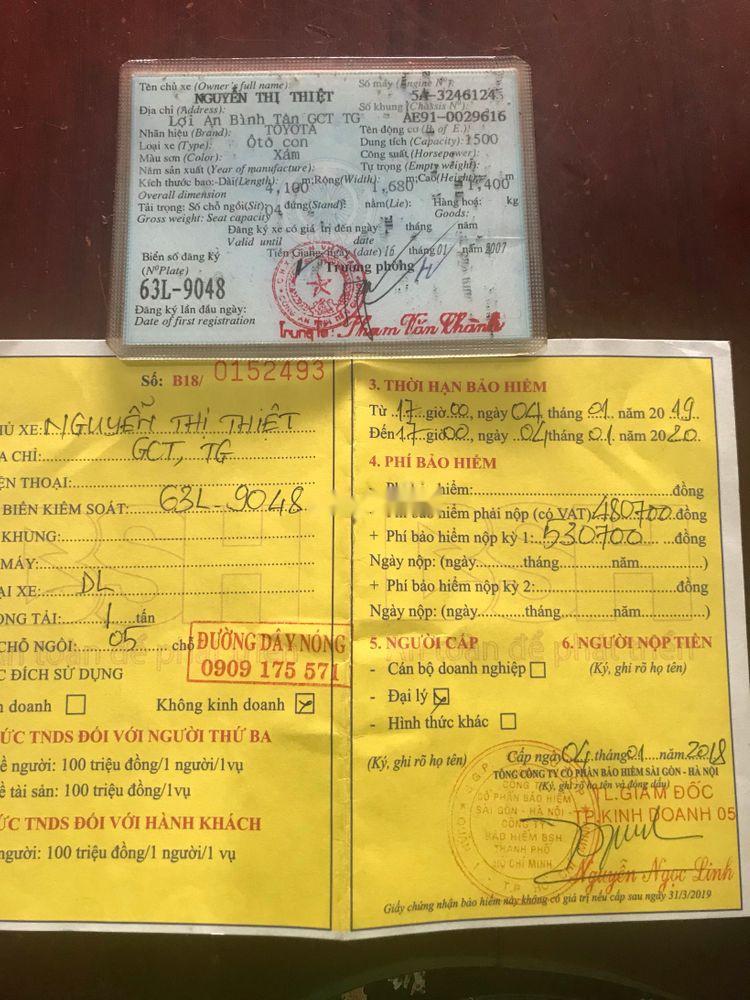 Tên chủ xe (Owner's full name): Số máy (Engine Nº):
NGUYỄN THỊ THIỆT 5A-3246124
Địa chỉ (Address): Số khung (Chassis Nº):
Lợi An Bình Tân GCT TG AE91-0029616
Nhãn hiệu (Brand): TOYOTA Tên động cơ (B. of E.):
Loại xe (Type): Ôtô con Dung tích (Capacity): 1500
Màu sơn (Color): Xám Công suất (Horsepower):
Năm sản xuất (Year of manufacture): Tự trọng (Empty weight):
Kích thước bao:-Dài(Length): 4,100 m;Rộng(Width): 1,680 m;Cao(Height): 1,400 m
Overall dimension
Tải trọng: Số chỗ ngồi(Sit): 04 đứng(Stand): nằm(Lie): Hàng hoá: kg
Gross weight: Seat capacity Goods:
Đăng ký xe có giá trị đến ngày tháng năm
Valid until date
Tiền Giang, ngày (date) 16 tháng 01 năm 2007
Biển số đăng ký Trưởng phòng
(NºPlate)
63L-9048
Đăng ký lần đầu ngày:
Date of first registration
Trung tá: Phạm Văn Chành
Số: B18/ 0152493
HỦ XE: NGUYỄN THỊ THIỆT
A CHỈ: GCT, TG
ỆN THOẠI:
BIỂN KIỂM SOÁT: 63L-9048
KHUNG:
MÁY:
ẠI XE: DL
ỌNG TẢI: 1 tấn
CHỖ NGỒI: 05 chỗ
ĐƯỜNG DÂY NÓNG
0909 175 571
C ĐÍCH SỬ DỤNG
h doanh Không kinh doanh
ỨC TNDS ĐỐI VỚI NGƯỜI THỨ BA
ề người: 100 triệu đồng/1 người/1vụ
ề tài sản: 100 triệu đồng/1vụ
ỨC TNDS ĐỐI VỚI HÀNH KHÁCH
người: 100 triệu đồng/1 người/1 vụ
3. THỜI HẠN BẢO HIỂM
Từ 17 giờ 00, ngày 04 tháng 01 năm 20 19
Đến 17 giờ 00, ngày 04 tháng 01 năm 2020
4. PHÍ BẢO HIỂM
hiểm: đồng
+ Phí bảo hiểm phải nộp (có VAT) 480700 đồng
+ Phí bảo hiểm nộp kỳ 1: 530700 đồng
Ngày nộp: (ngày tháng năm )
+ Phí bảo hiểm nộp kỳ 2: đồng
Ngày nộp: (ngày tháng năm )
5. NGƯỜI CẤP 6. NGƯỜI NỘP TIỀN
- Cán bộ doanh nghiệp (Ký, ghi rõ họ tên)
- Đại lý
- Hình thức khác
(Ký, ghi rõ họ tên) Cấp ngày 04 tháng 01 năm 2018
TỔNG CÔNG TY CỔ PHẦN BẢO HIỂM SÀI GÒN - HÀ NỘI
(Ký, ghi rõ họ tên và đóng dấu)
CÔNG TY
CỔ PHẦN BẢO HIỂM
SÀI GÒN - HÀ NỘI
CÔNG TY
BẢO HIỂM BSH
THÀNH PHỐ
HỒ CHÍ MINH
TL.GIÁM ĐỐC
TP.KINH DOANH 05
Nguyễn Ngọc Linh
Giấy chứng nhận bảo hiểm này không có giá trị nếu cấp sau ngày 31/3/2019